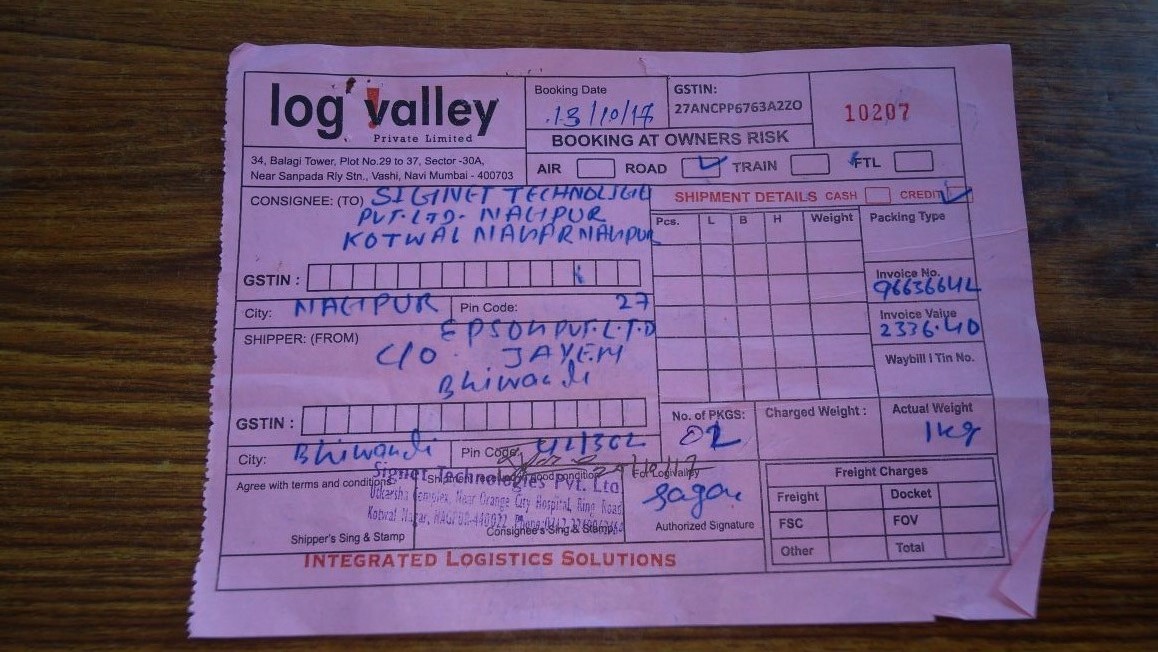 log valley
Private Limited
34, Balagi Tower, Plot No.29 to 37, Sector -30A,
Near Sanpada Rly Stn., Vashi, Navi Mumbai - 400703
Booking Date
13/10/17
GSTIN:
27ANCPP6763A2ZO
10207
BOOKING AT OWNERS RISK
AIR ROAD TRAIN FTL
CONSIGNEE: (TO) SIGINET TECHNOLIGIE
PVT.LTD. NAGPUR
KOTWAL NAGAR NAGPUR
GSTIN :
City: NAGPUR Pin Code: 27
SHIPPER: (FROM) EPSON PVT.L.T.D
C/O JAYEM
Bhiwandi
GSTIN :
City: Bhiwandi Pin Code: 421302
SHIPMENT DETAILS CASH CREDIT
Pcs. L B H Weight Packing Type
Invoice No.
Invoice Value
2336.40
Waybill I Tin No.
No. of PKGS:
02
Charged Weight :
Actual Weight
1kg
Agree with terms and conditions
Shipper's Sing & Stamp
good condition
Signet Technologies Pvt. Ltd
Utkarsha Complex, Near Orange City Hospital, Ring Road
Kotwal Nagar, NAGPUR-440022
Consignee's Sing & Stamp
For LogValley
Sagar
Authorized Signature
Freight Charges
Freight Docket
FSC FOV
Other Total
INTEGRATED LOGISTICS SOLUTIONS